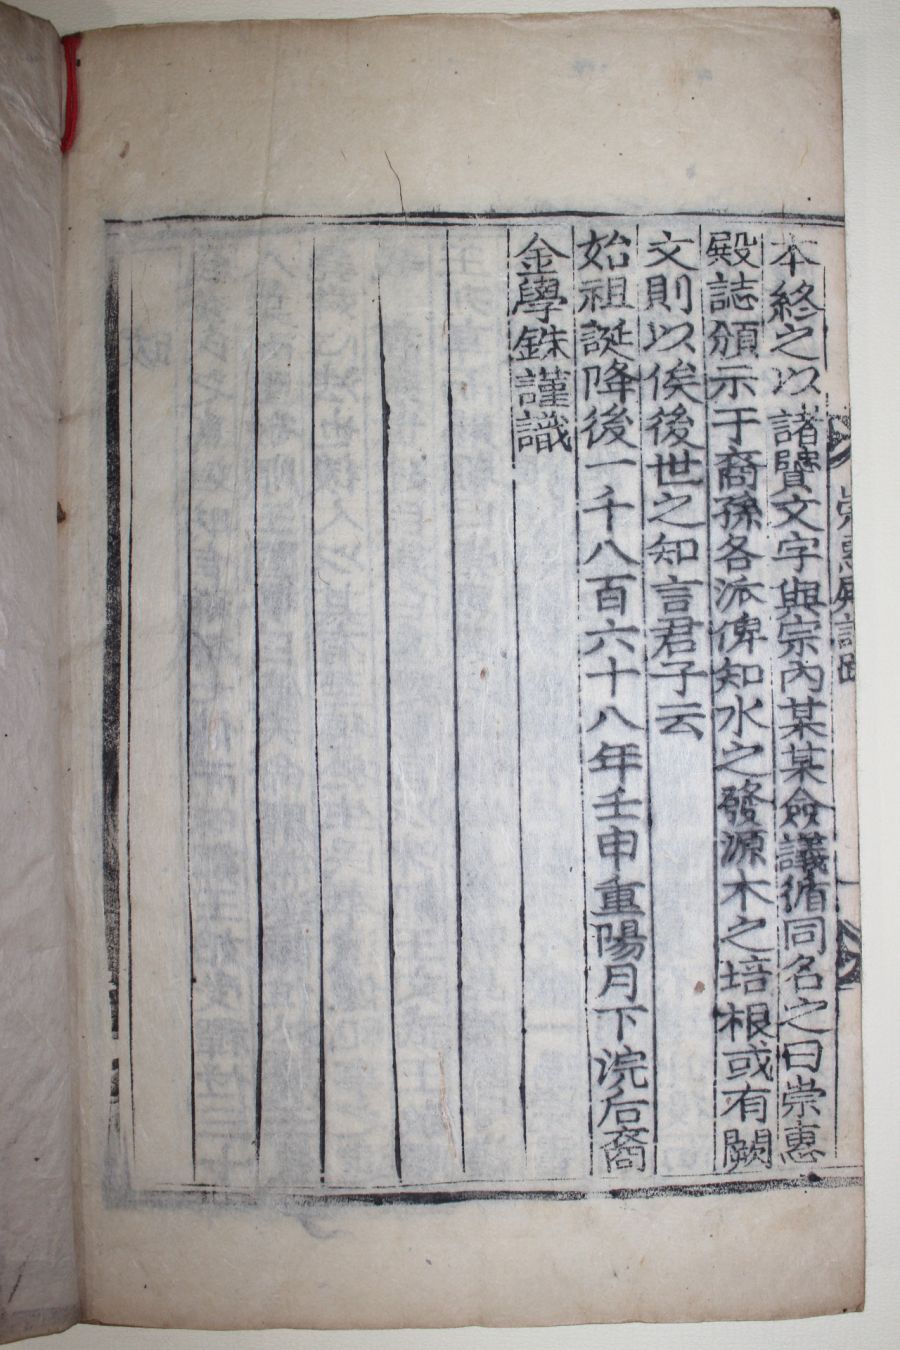 本終之以諸賢文字與宗內某某僉議循同名之曰崇惠
殿誌頒示于裔孫各派俾知水之發源木之培根或有闕
文則以俟後世之知言君子云
始祖誕降後一千八百六十八年壬申重陽月下浣后裔
金學銖謹識
崇惠殿誌